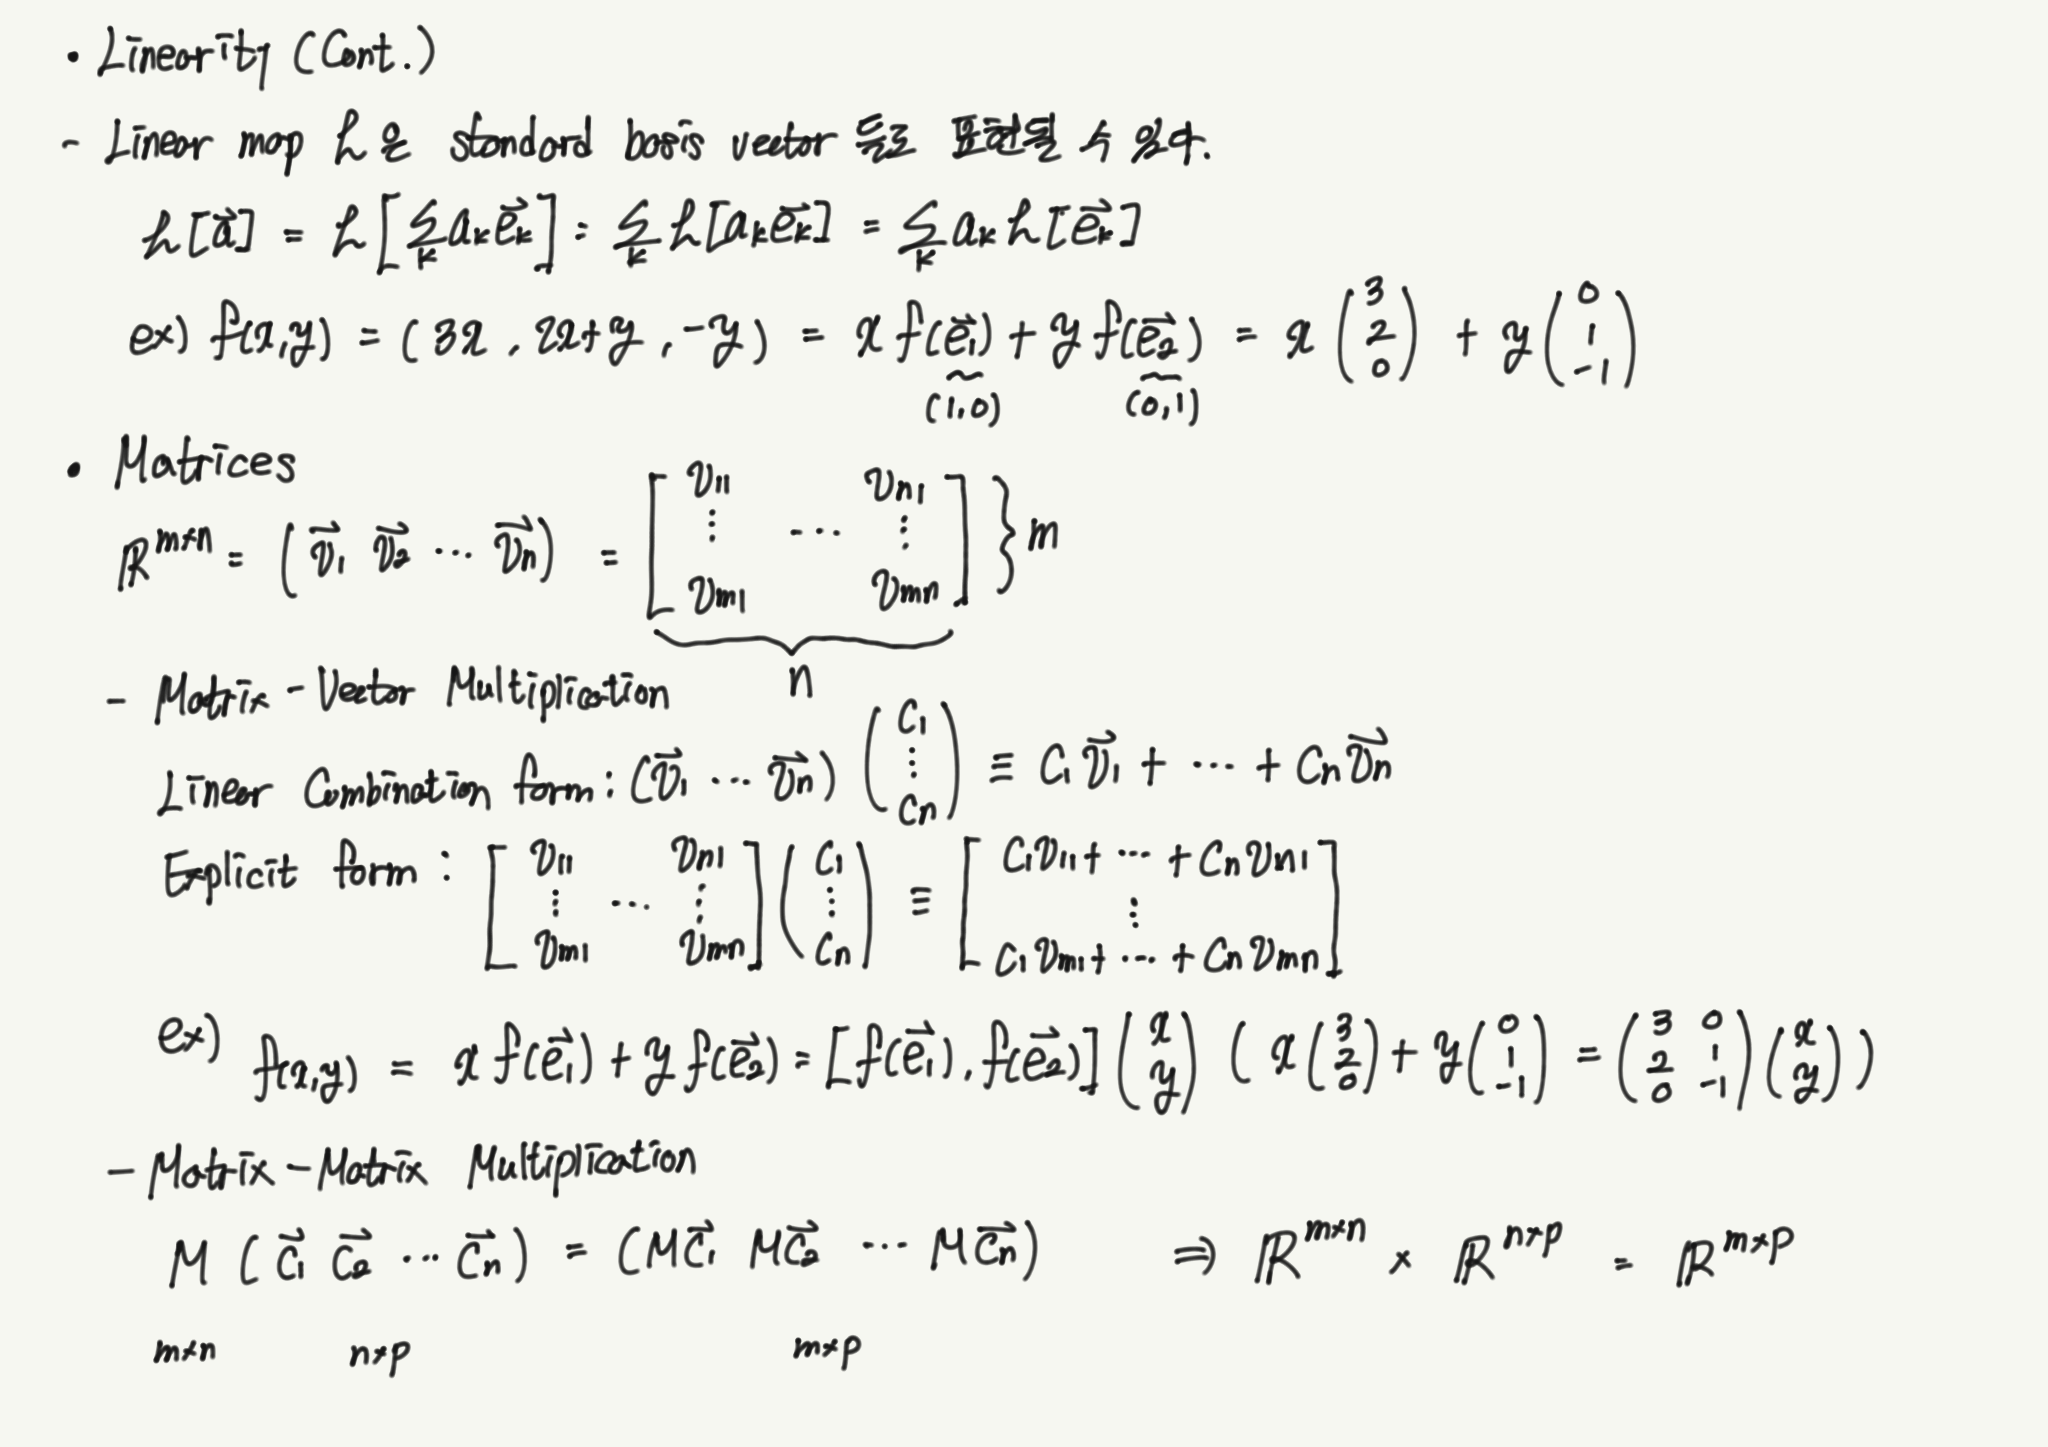 • Linearity (Cont.)
- Linear map L은 standard basis vector 들로 표현될 수 있다.
L[a⃗] = L[∑ₖ aₖe⃗ₖ] = ∑ₖ L[aₖe⃗ₖ] = ∑ₖ aₖ L[e⃗ₖ]
ex) f(x,y) = (3x, 2x+y, -y) = x f(e⃗₁) + y f(e⃗₂) = x (3 2 0) + y (0 1 -1)
(1,0) (0,1)
• Matrices
ℝ^{m×n} = (v⃗₁ v⃗₂ ⋯ v⃗ₙ) = [v₁₁ ⋯ vₙ₁ ⋮ ⋮ vₘ₁ vₘₙ] } m
n
- Matrix - Vector Multiplication
Linear Combination form: (v⃗₁ ⋯ v⃗ₙ) (c₁ ⋮ cₙ) ≡ c₁v⃗₁ + ⋯ + cₙv⃗ₙ
Explicit form : [v₁₁ ⋯ vₙ₁ ⋮ ⋮ vₘ₁ vₘₙ] (c₁ ⋮ cₙ) ≡ [c₁v₁₁ + ⋯ + cₙvₙ₁ ⋮ c₁vₘ₁ + ⋯ + cₙvₘₙ]
ex) f(x,y) = x f(e⃗₁) + y f(e⃗₂) = [f(e⃗₁), f(e⃗₂)] (x y) ( x (3 2 0) + y (0 1 -1) = (3 0 2 1 0 -1) (x y) )
- Matrix - Matrix Multiplication
M (c⃗₁ c⃗₂ ⋯ c⃗ₙ) = (Mc⃗₁ Mc⃗₂ ⋯ Mc⃗ₙ) ⇒ ℝ^{m×n} × ℝ^{n×p} = ℝ^{m×p}
m×n n×p m×p